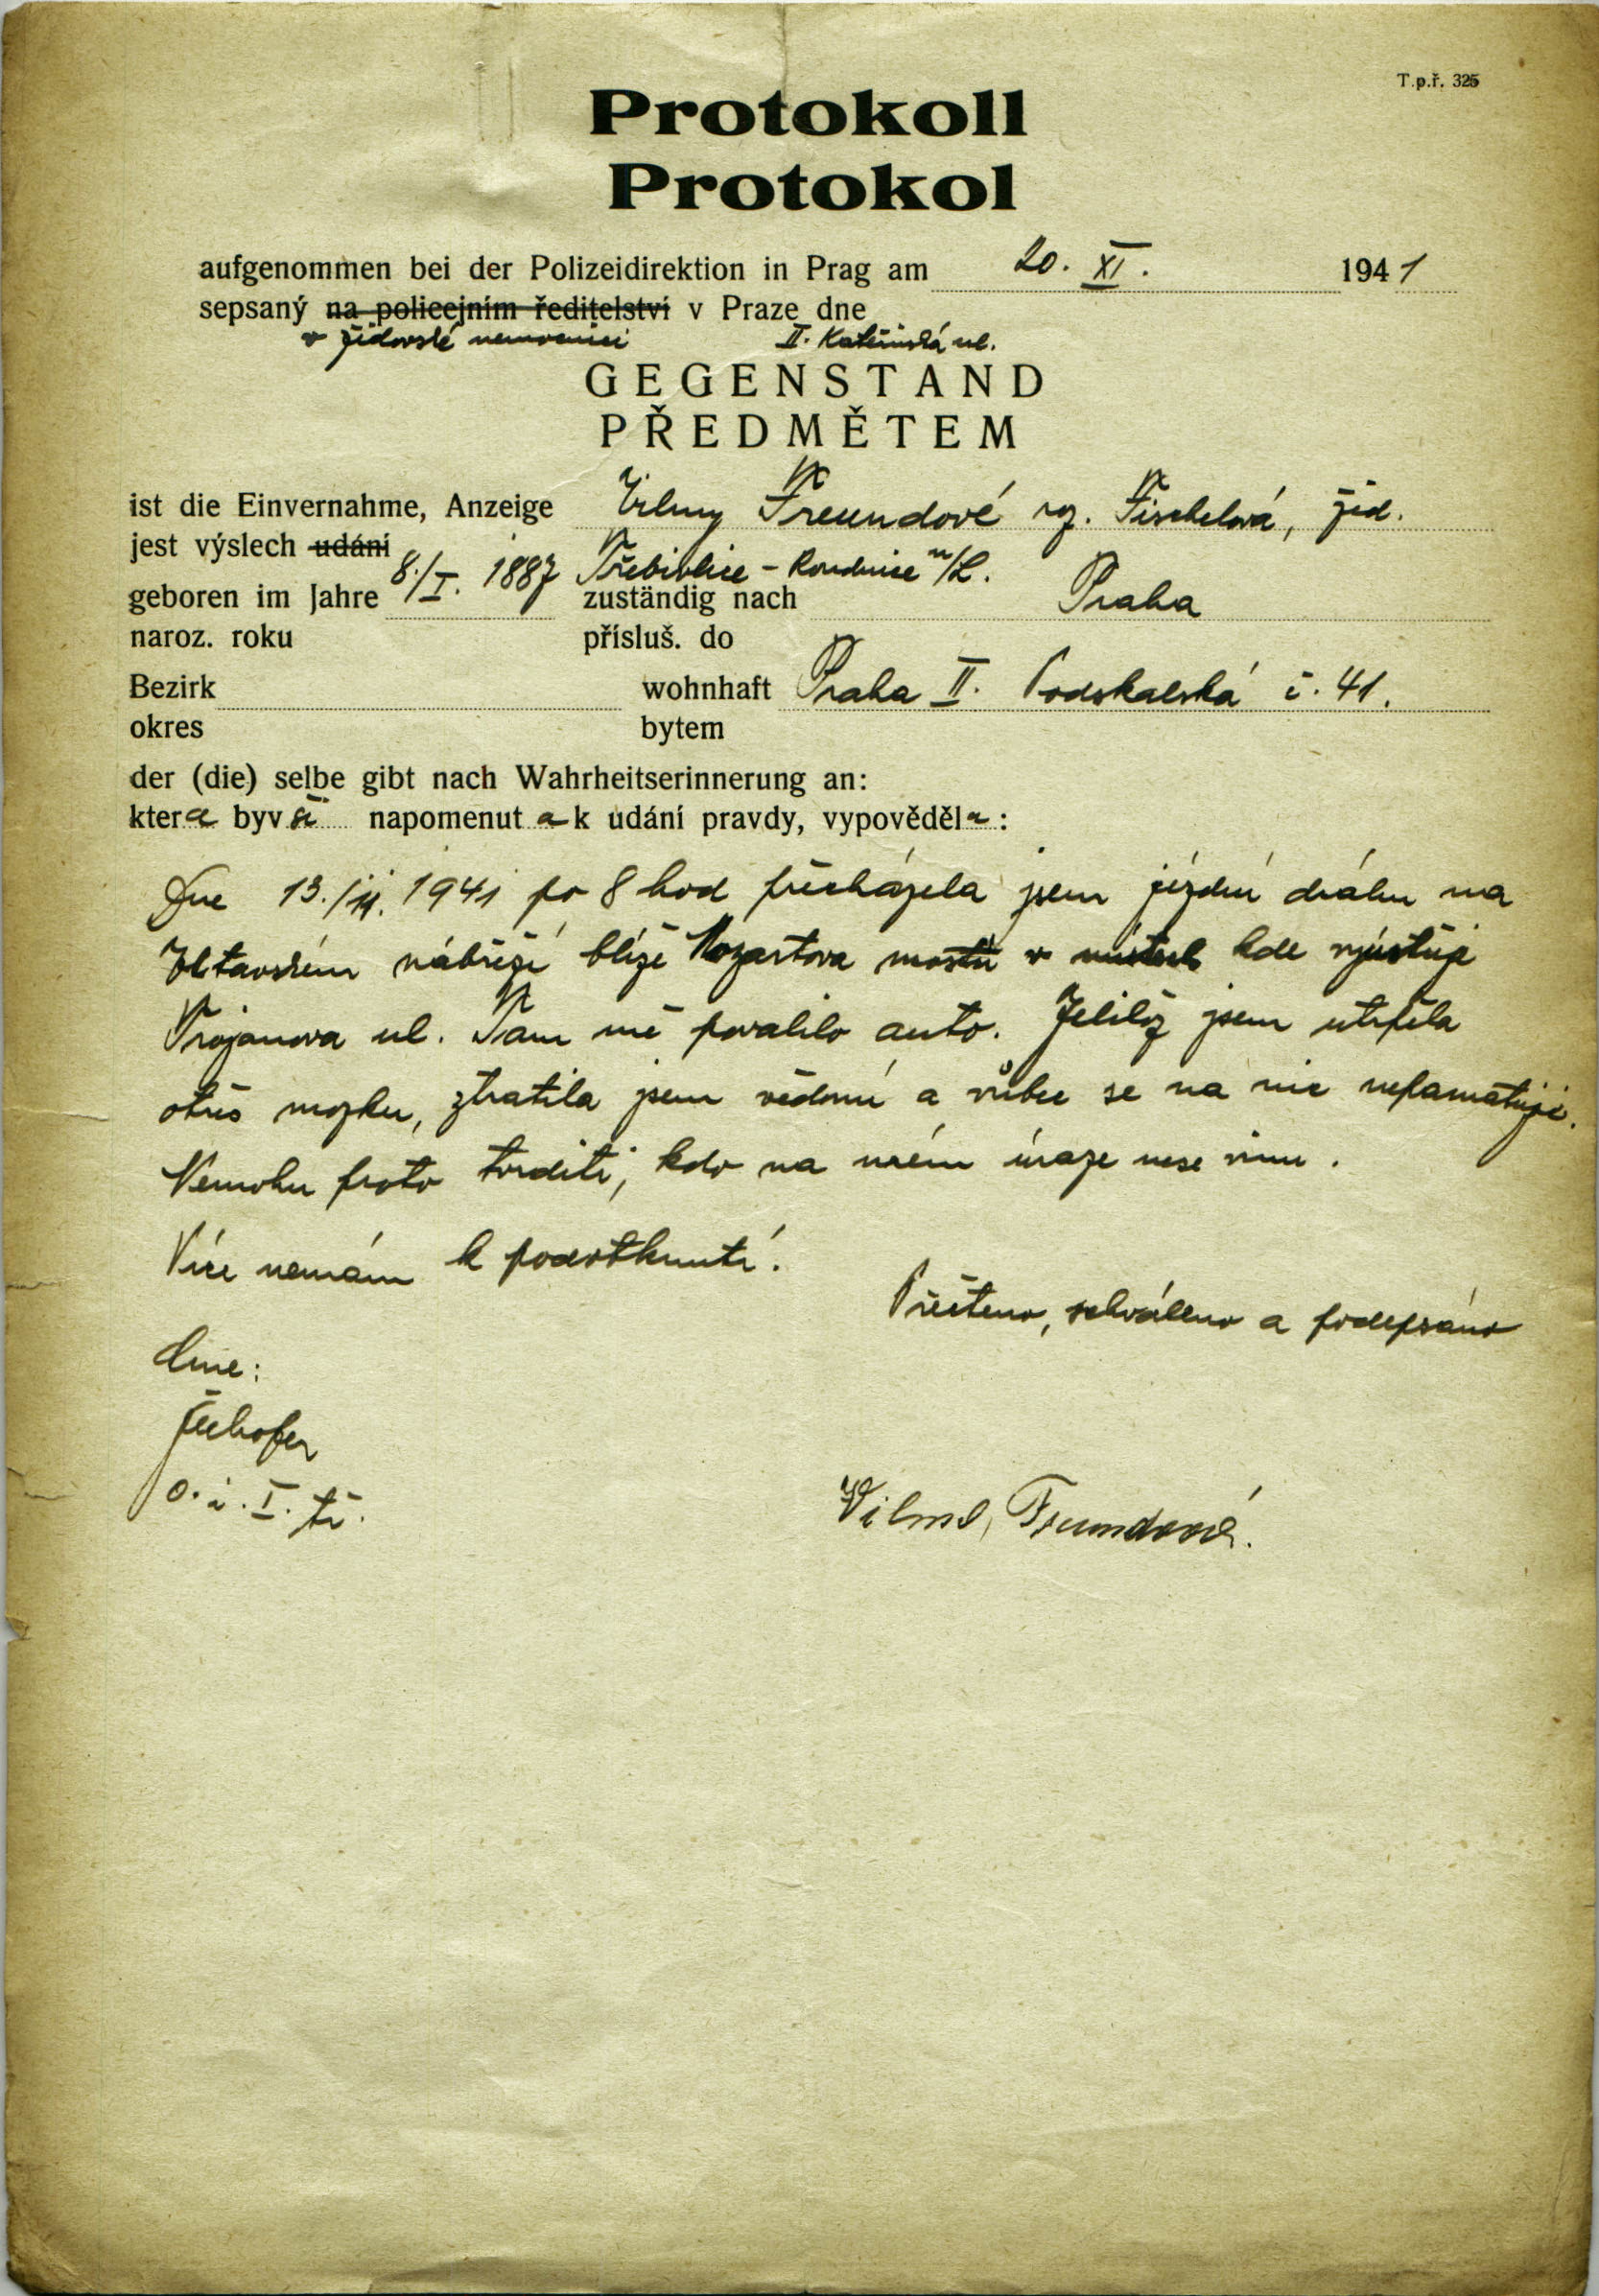 T.p.ř. 325
Protokoll
Protokol
aufgenommen bei der Polizeidirektion in Prag am 20. XI. 1941
sepsaný na policejním ředitelství v Praze dne
v židovské nemocnici II. Kateřinská ul.
GEGENSTAND
PŘEDMĚTEM
ist die Einvernahme, Anzeige Vilmy Freundové roz. Fischelová, žid.
jest výslech udání
8./I. 1887 Třebivlice - Roudnice n/L.
geboren im Jahre zuständig nach Praha
naroz. roku přísluš. do
Bezirk wohnhaft Praha II. Podskalská č. 41.
okres bytem
der (die) selbe gibt nach Wahrheitserinnerung an:
která byvši napomenuta k udání pravdy, vypověděla:
Dne 13./11. 1941 po 8 hod přecházela jsem jízdní dráhu na
Vltavském nábřeží blíže Mozartova mostu v místech kde vyúsťuje
Trojanova ul. Tam mě povalilo auto. Jelikož jsem utrpěla
otřes mozku, ztratila jsem vědomí a vůbec se na nic nepamatuji.
Nemohu proto tvrditi, kdo na mém úraze nese vinu.
Více nemám k podotknutí.
Přečteno, schváleno a podepsáno
o. i. I. tř.
Vilma, Freundová.